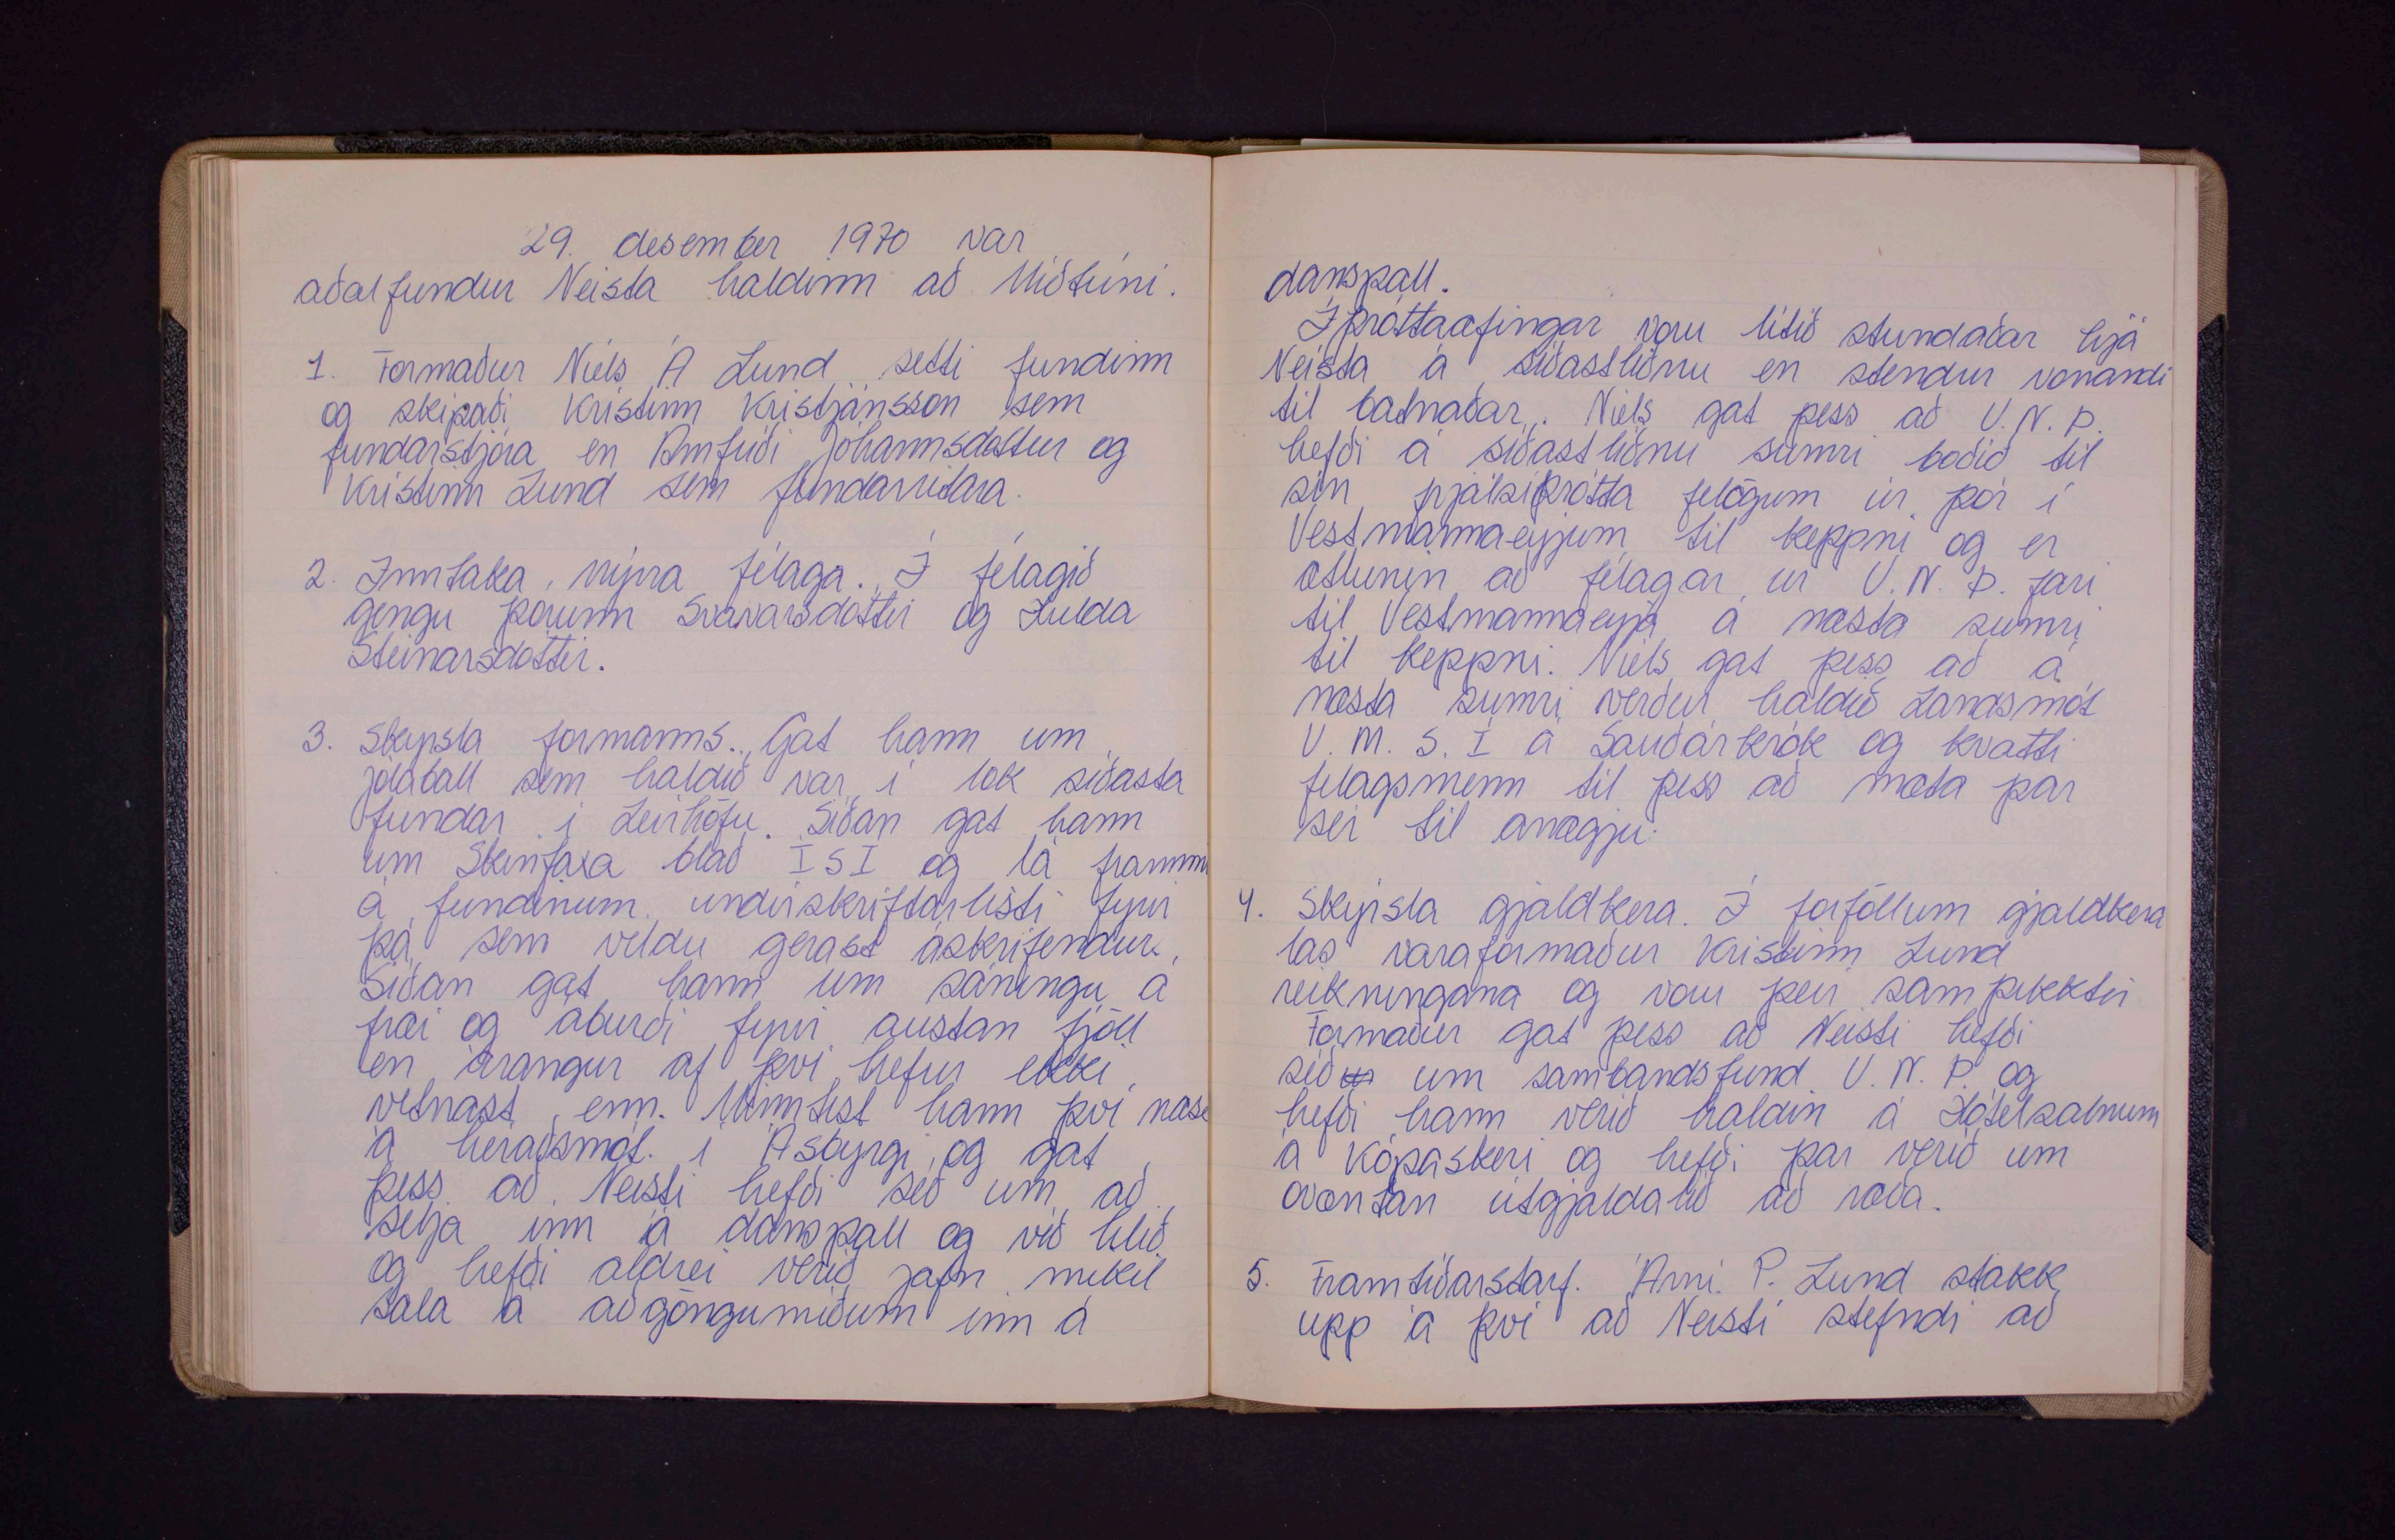 29. desember 1970 var
aðalfundur Neista haldinn að Miðtúni.
1. Formaður Níels Á Lund setti fundinn
og skipaði Kristinn Kristjánsson sem
fundarstjóra en Arnfríði Jóhannsdóttur og
Kristinn Lund sem fundarritara.
2. Inntaka nýrra félaga. Í félagið
gengu Þórunn Svavarsdóttir og Hulda
Steinarsdóttir.
3. Skýrsla formanns. Gat hann um
jólaball sem haldið var í lok síðasta
fundar í Leirhöfn. Síðan gat hann
um Skinfaxa blað ÍSÍ og lá frammi
á fundinum undirskriftarlisti fyrir
þá sem vildu gerast áskrifendur.
Síðan gat hann um sáningu á
fræi og áburði fyrir austan fjöll
en árangur af því hefur ekki
vitnast enn. Minntist hann því næst
á héraðsmót í Ásbyrgi og gat
þess að Neisti hefði séð um að
selja inn á danspall og við hlið
og hefði aldrei verið jafn mikil
sala á aðgöngumiðum inn á
danspall.
Íþróttaæfingar voru lítið stundaðar hjá
Neista á síðastliðnu en stendur vonandi
til batnaðar. Níels gat þess að U.N.Þ.
hefði á síðastliðnu sumri boðið til
sín frjálsíþrótta felögum úr Þór í
Vestmannaeyjum til keppni og er
ætlunin að félagar úr U.N.Þ. fari
til Vestmannaeyja á næsta sumri
til keppni. Níels gat þess að á
næsta sumri verður haldið Landsmót
U.M.S.Í á Sauðárkrók og kvatti
felagsmenn til þess að mæta þar
sér til ánægju.
4. Skýrsla gjaldkera. Í forföllum gjaldkera
las varaformaður Kristinn Lund
reikningana og voru þeir samþykktir
Formaður gat þess að Neisti hefði
séð um sambandsfund U.N.Þ. og
hefði hann verið haldin á Hótelsalnum
á Kópaskeri og hefði þar verið um
óvæntan útgjaldalið að ræða.
5. Framtíðarstarf. Árni P. Lund stakk
upp á því að Neisti stefndi að